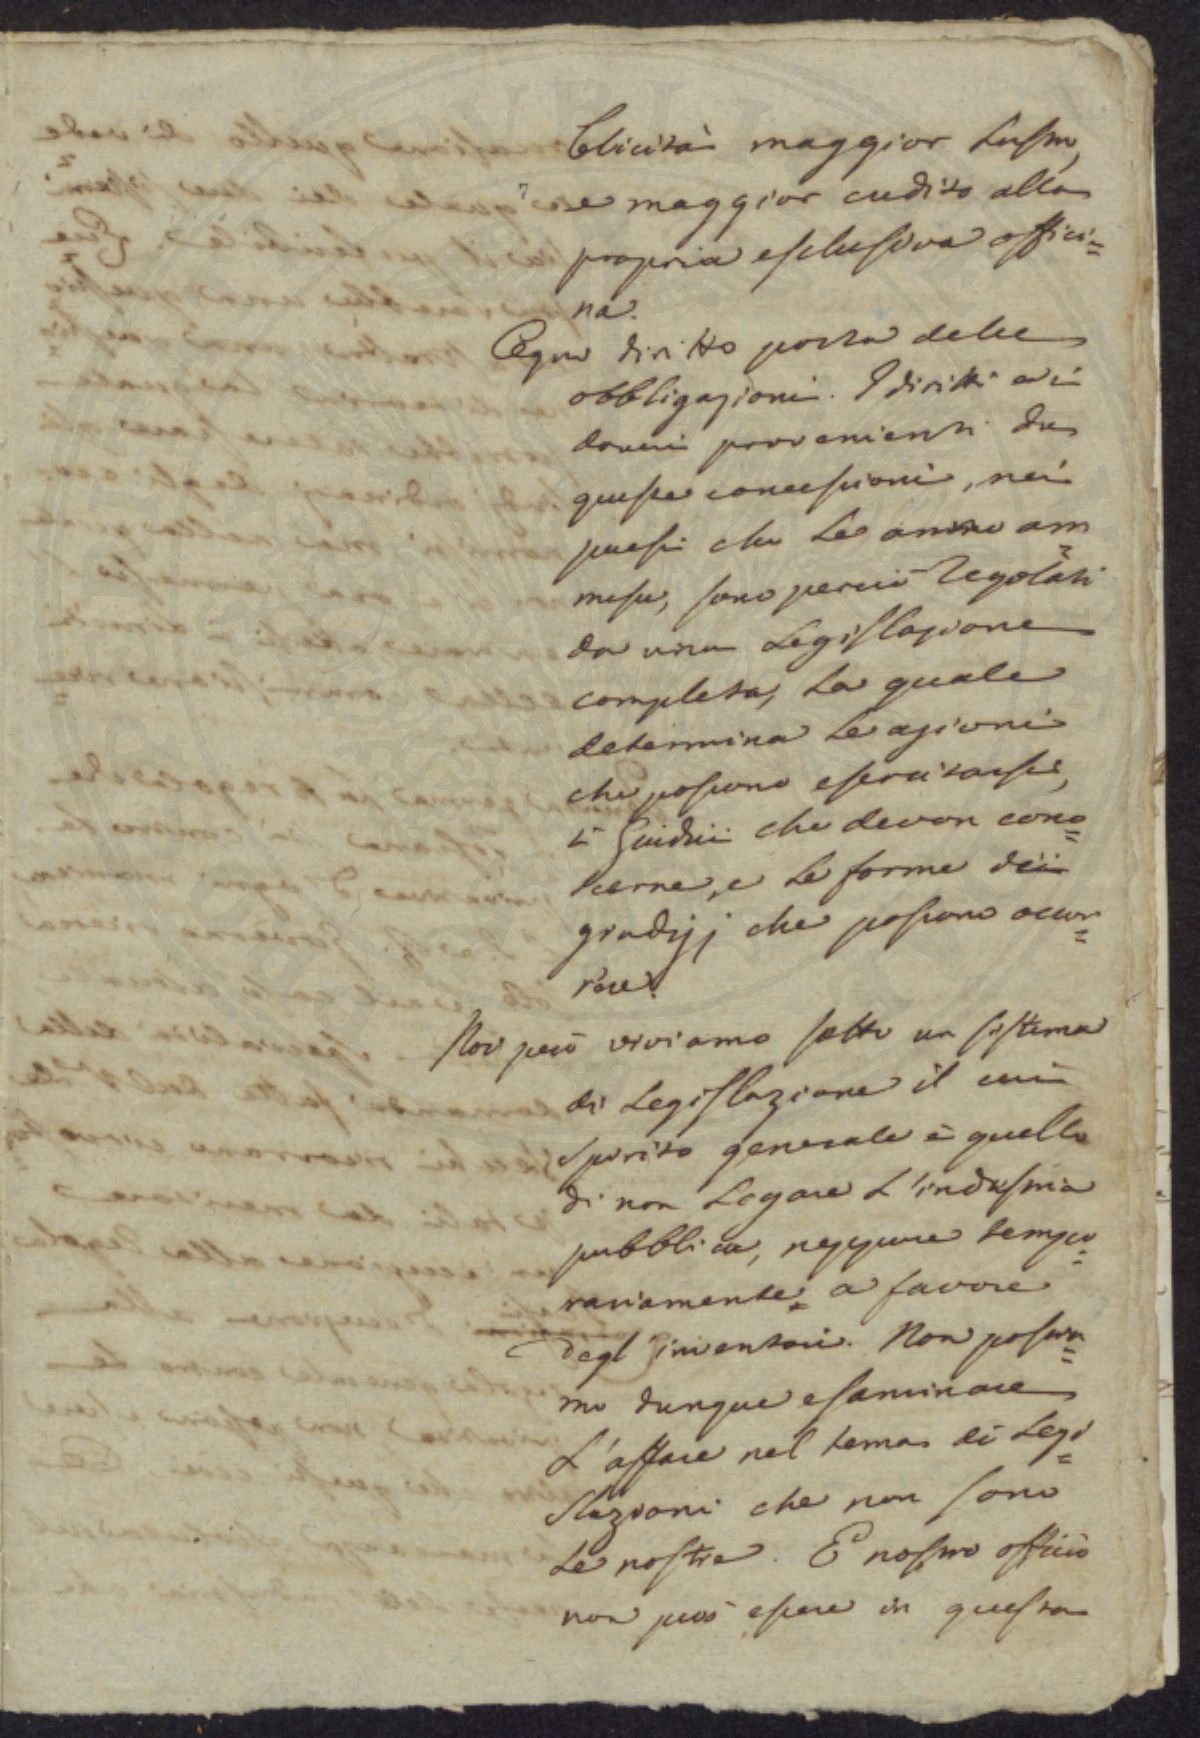 blicità maggior lustro,
e maggior credito alla
propria esclusiva offici=
na.
Ogni diritto porta delle
obbligazioni. I diritti e i
doveri provenienti da
queste concessioni, nei
paesi che le anno am=
messe, sono perciò regolati
da una Legislazione
completa, la quale
determina le azioni
che possono esercitarsi,
i Giudici che devon cono=
scerne, e le forme dei
giudizj che possono occor=
rere.
Noi però viviamo sotto un sistema
di Legislazione il cui
spirito generale è quello
di non legare l'industria
pubblica, neppure tempo=
rariamente a favore
degl'inventori. Non possia=
mo dunque esaminare
l'affare nel tema di Legi=
slazioni che non sono
le nostre. E nostro officio
non può essere in questa